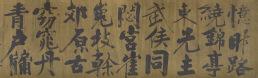 憶昨路
繞錦亭
東先主
武侯同
閟宮崔
嵬枝幹
郊原古
窈窕丹
青戶牖